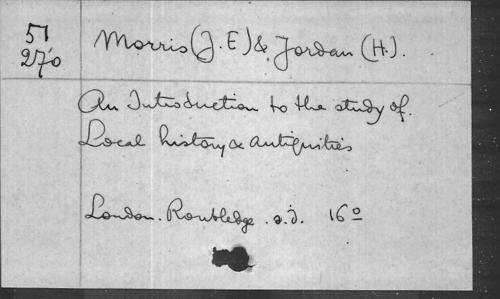 51
270
Morris (J. E) & Jordan (H.).
An Introduction to the study of.
Local history & antiquities
London. Routledge. s.d. 16º